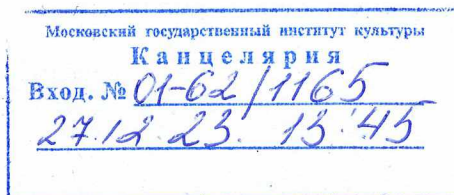 Московский государственный институт культуры
Канцелярия
Вход. № 01-62/1165
27.12.23. 13:45